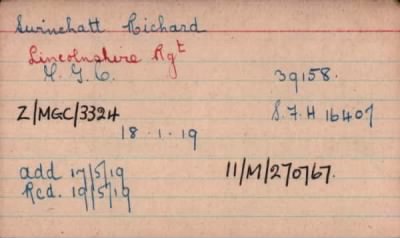 Swinchatt Richard
Lincolnshire Rgt
M. G. C. 39158.
Z/MGC/3324 S.F.H 16407
18.1.19
add 17/5/19 11/M/270767.
Rcd. 19/5/19